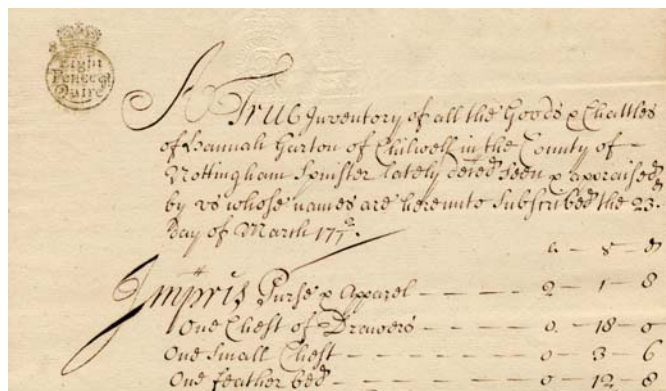 Eight
Pence p
Quire
A True Inventory of all the Goods & Chattles
of Hannah Garton of Chilwell in the County of
Nottingham Spinster lately deced seen & appraised
by us whose names are hereunto Subscribed the 23
Day of March 17
li - s - d
Impris Purse & Apparel - - - - - 2 - 1 - 8
One Chest of Drawers - - - - - 0 - 18 - 0
One Small Chest - - - - - - 0 - 3 - 6
One feather bed - - - - - - 0 - 12 - 8